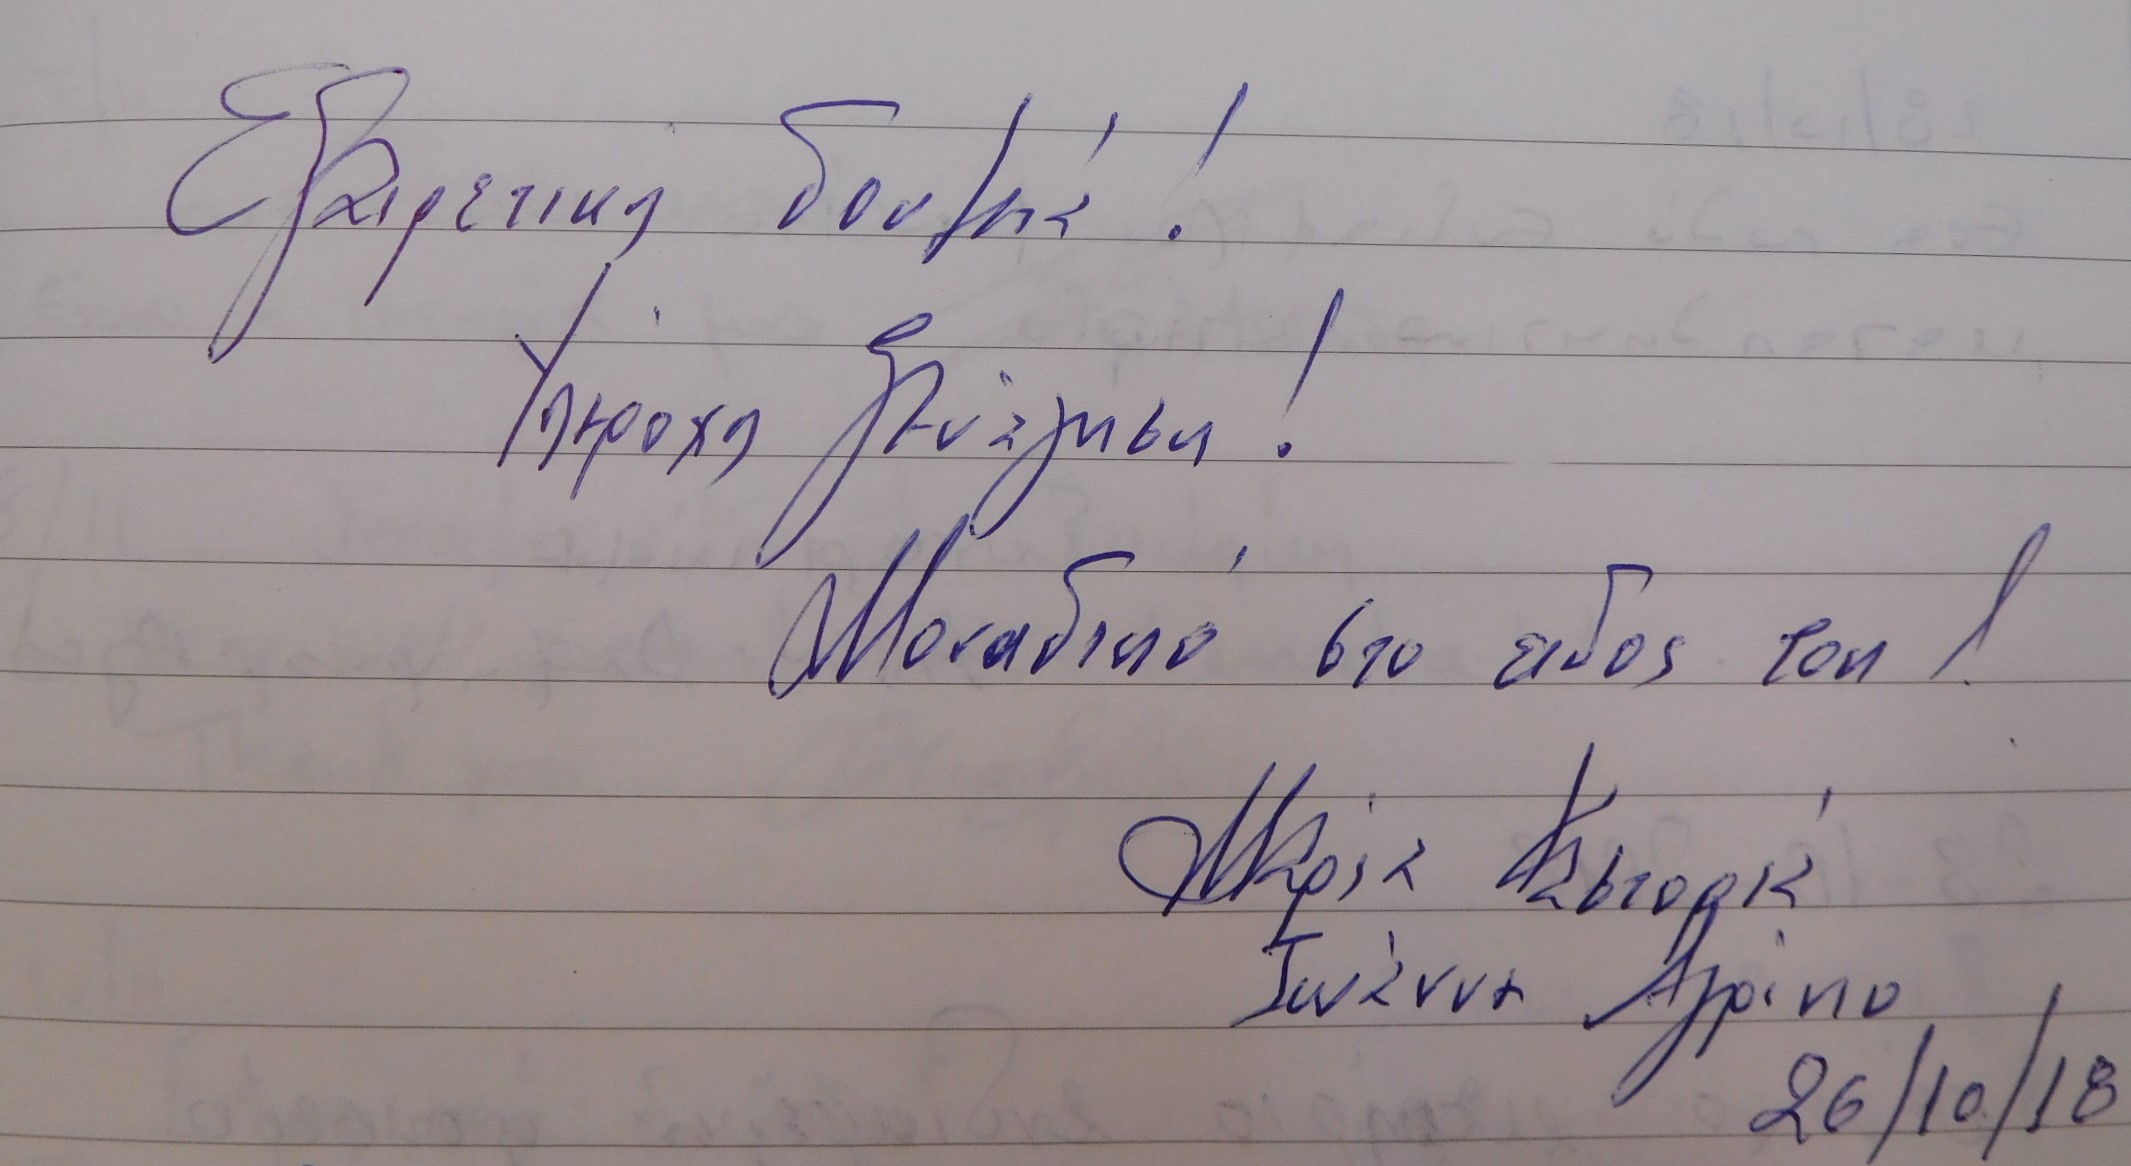 Εξαιρετικη δουλειά!
Υπεροχη ξενάγηση!
Μοναδικό στο ειδος του!
Μαρία Καστορά
Ιωάννα Αγρίπο
26/10/18